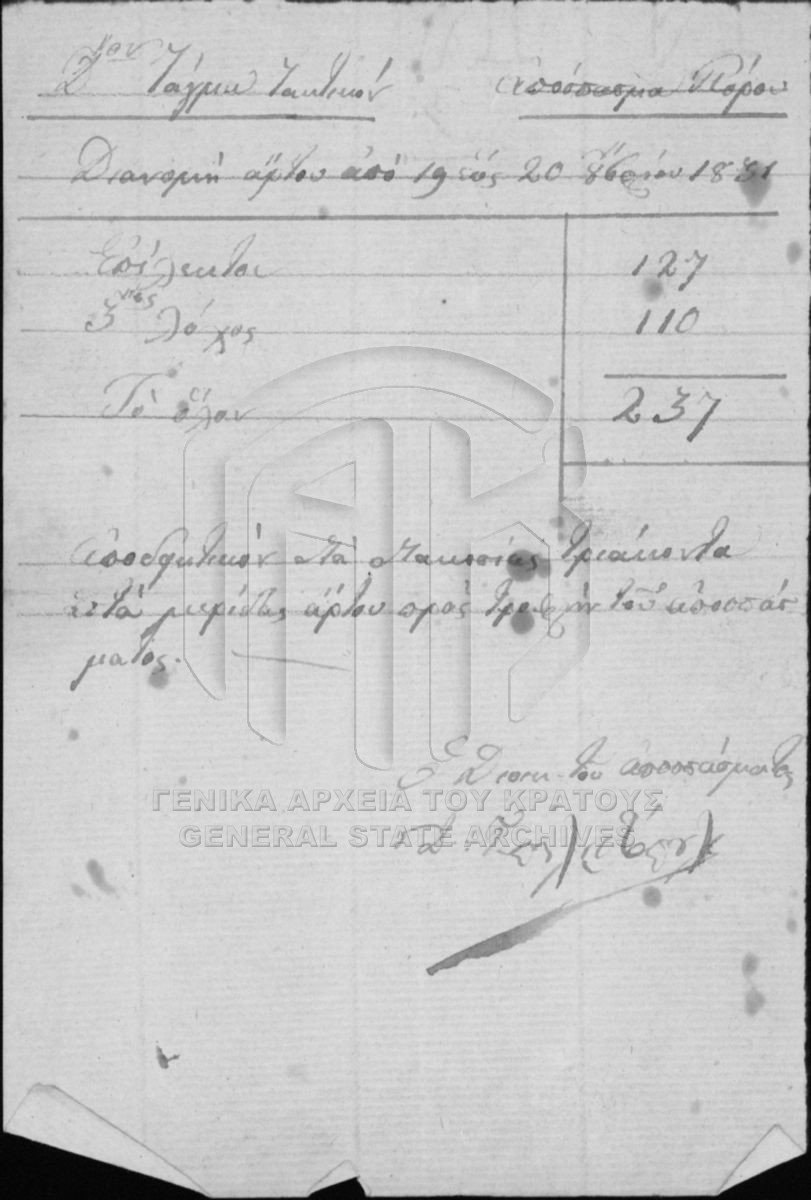 2ον Τάγμα τακτικόν Απόσπασμα Πόρου
Διανομή άρτου από 19 έως 20 8βρίου 1831
Επίλεκτοι 127
3ντος λόχος 110
Το όλον 237
αποδεικτικόν διά διακοσίας τριάκοντα
επτά μερίδας άρτου προς τροφήν του αποσπάσ
ματος.
Ο Διοικ. του αποσπάσματος
ΓΕΝΙΚΑ ΑΡΧΕΙΑ ΤΟΥ ΚΡΑΤΟΥΣ
GENERAL STATE ARCHIVES